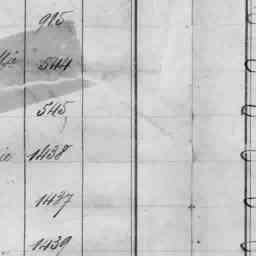 915
544
545
ie 1438
1437
1439